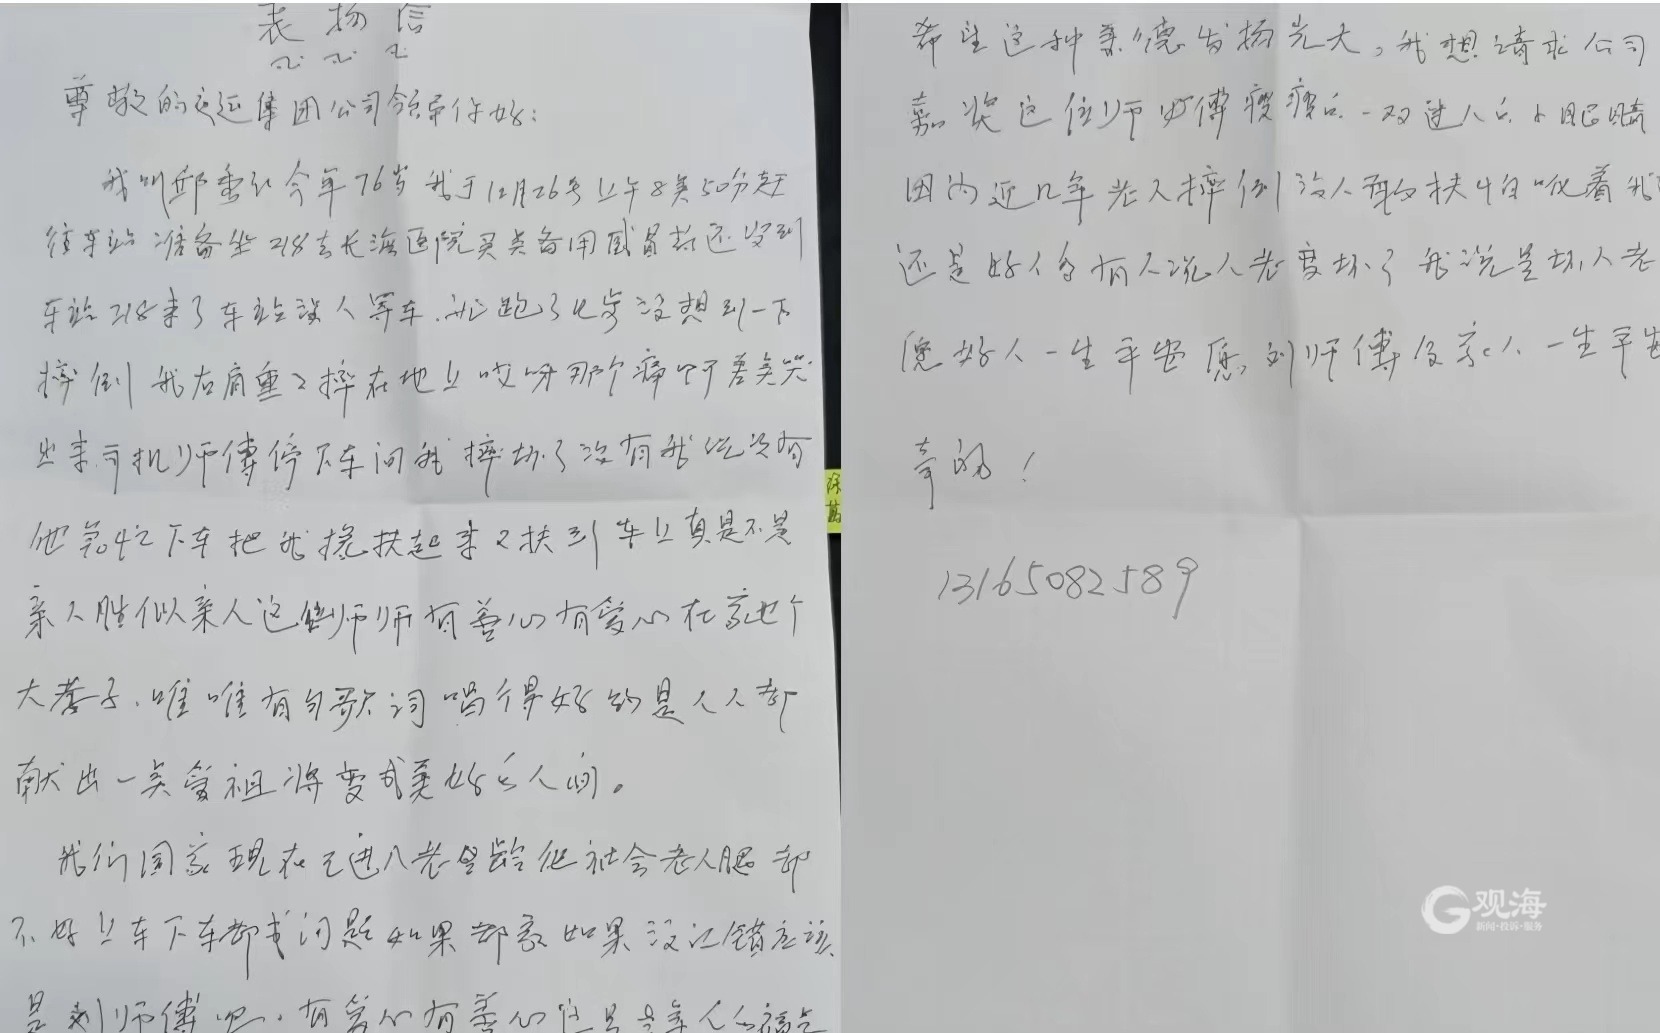 表扬信
尊敬的交运集团公司领导你好：
我叫邱重 今年76岁 我于12月26号上午8点50分赶
往车站 准备坐218去长海医院买点备用感冒药还没到
车站218来了车站没人等车.我跑了几步没想到一下
摔倒 我右肩重重摔在地上哎呀那个痛 差点哭
出来.司机师傅停下车问我摔坏了没有我说没有
他急忙下车把我搀扶起来又扶到车上真是不是
亲人胜似亲人这位师师有善心有爱心在家也个
大孝子.唯唯有句歌词唱得好的是人人都
献出一点爱祖将变成美好的人间。
我们国家现在已进入老星龄化社会老人腿都
不好上车下车都成问题如果都象如果没记错应该
是刘师傅吧.有爱心有善心 老人的福
徐
希望这种美德发扬光大,我想请求公司
嘉奖这位师 傅瘦瘦的一双迷人的小眼睛
因为近几年老人摔倒没人敢扶 着我
还是好人多有人说人老变坏了我说是坏人老
愿好人一生平安愿刘师傅及家人一生平安
幸福！
13165082589
观海
新闻·投诉·服务